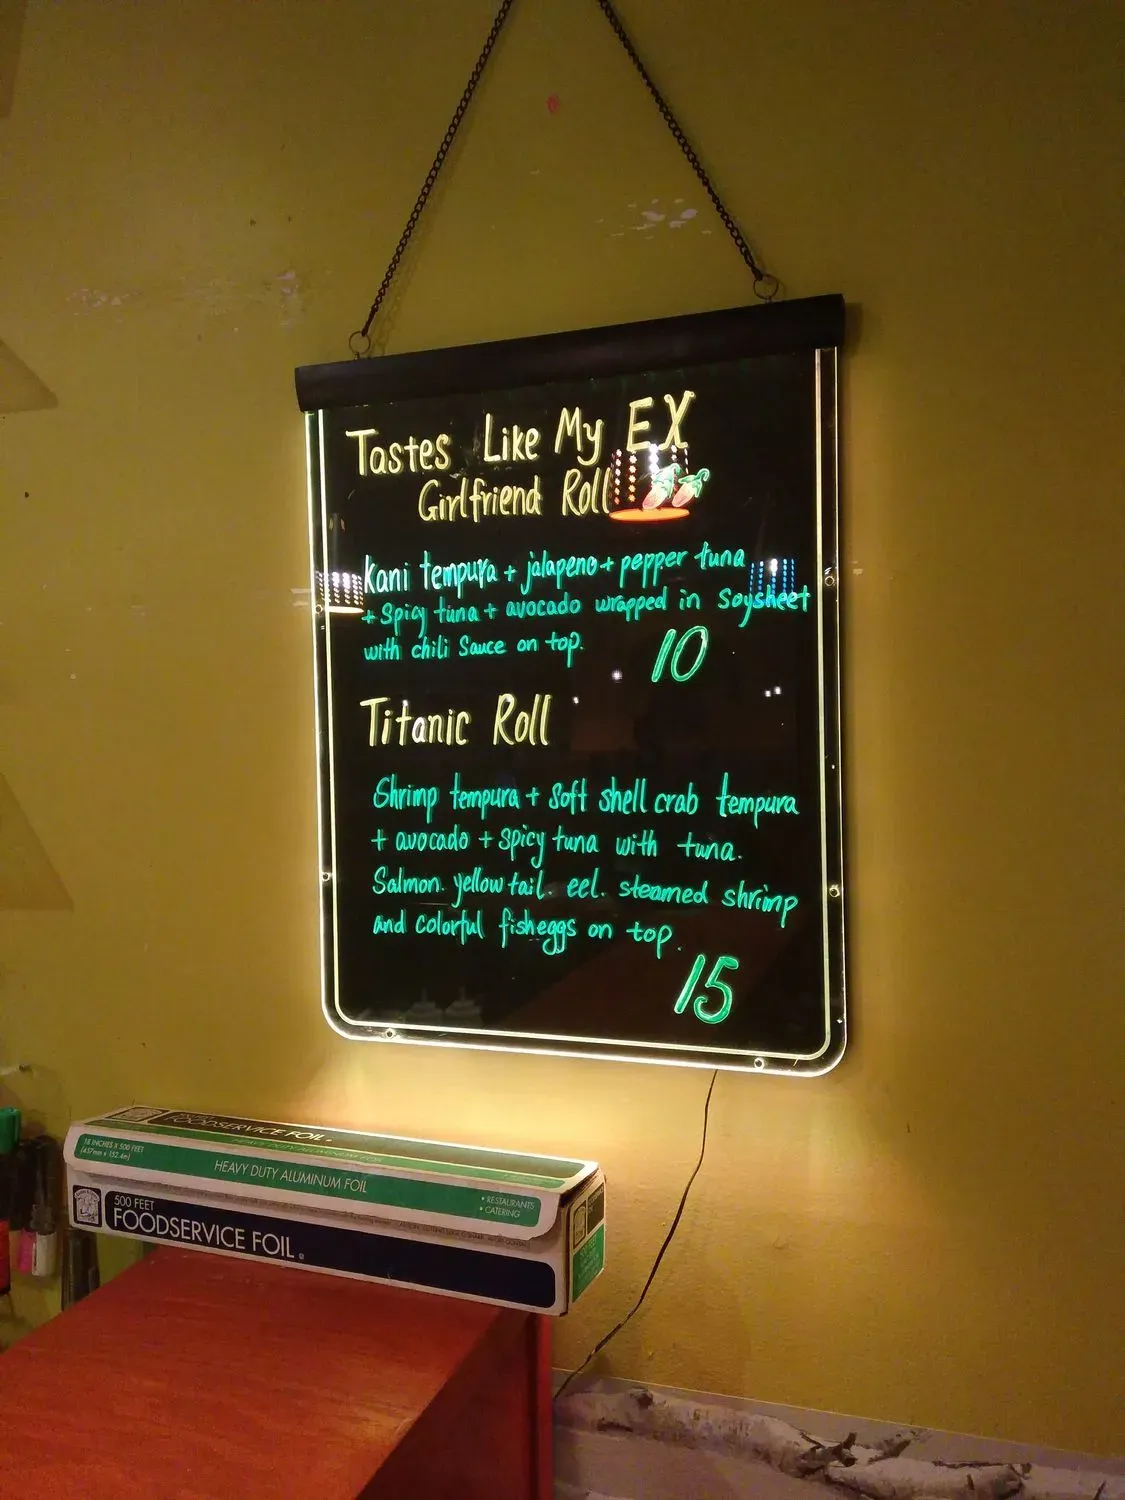 Tastes Like My EX
Girlfriend Roll
Kani tempura + jalapeno + pepper tuna
+ Spicy tuna + avocado wrapped in Soysheet
with chili Sauce on top.
10
Titanic Roll
Shrimp tempura + Soft shell crab tempura
+ avocado + Spicy tuna with tuna.
Salmon. yellow tail. eel. steamed shrimp
and colorful fisheggs on top.
15
FOODSERVICE FOIL
HEAVY DUTY ALUMINUM FOIL
18 INCHES X 500 FEET
(457mm x 152.4m)
HEAVY DUTY ALUMINUM FOIL
• RESTAURANTS
• CATERING
500 FEET
FOODSERVICE FOIL